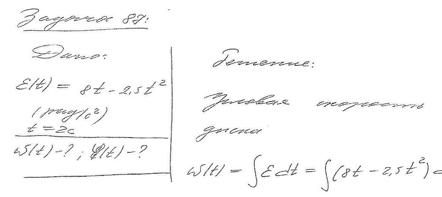 Задача 87:
Дано:
ε(t) = 8t - 2,5t²
(рад/с²)
t = 2c
ω(t) - ? ; φ(t) - ?
Решение:
Угловая скорость
диска
ω(t) = ∫εdt = ∫(8t - 2,5t²)d